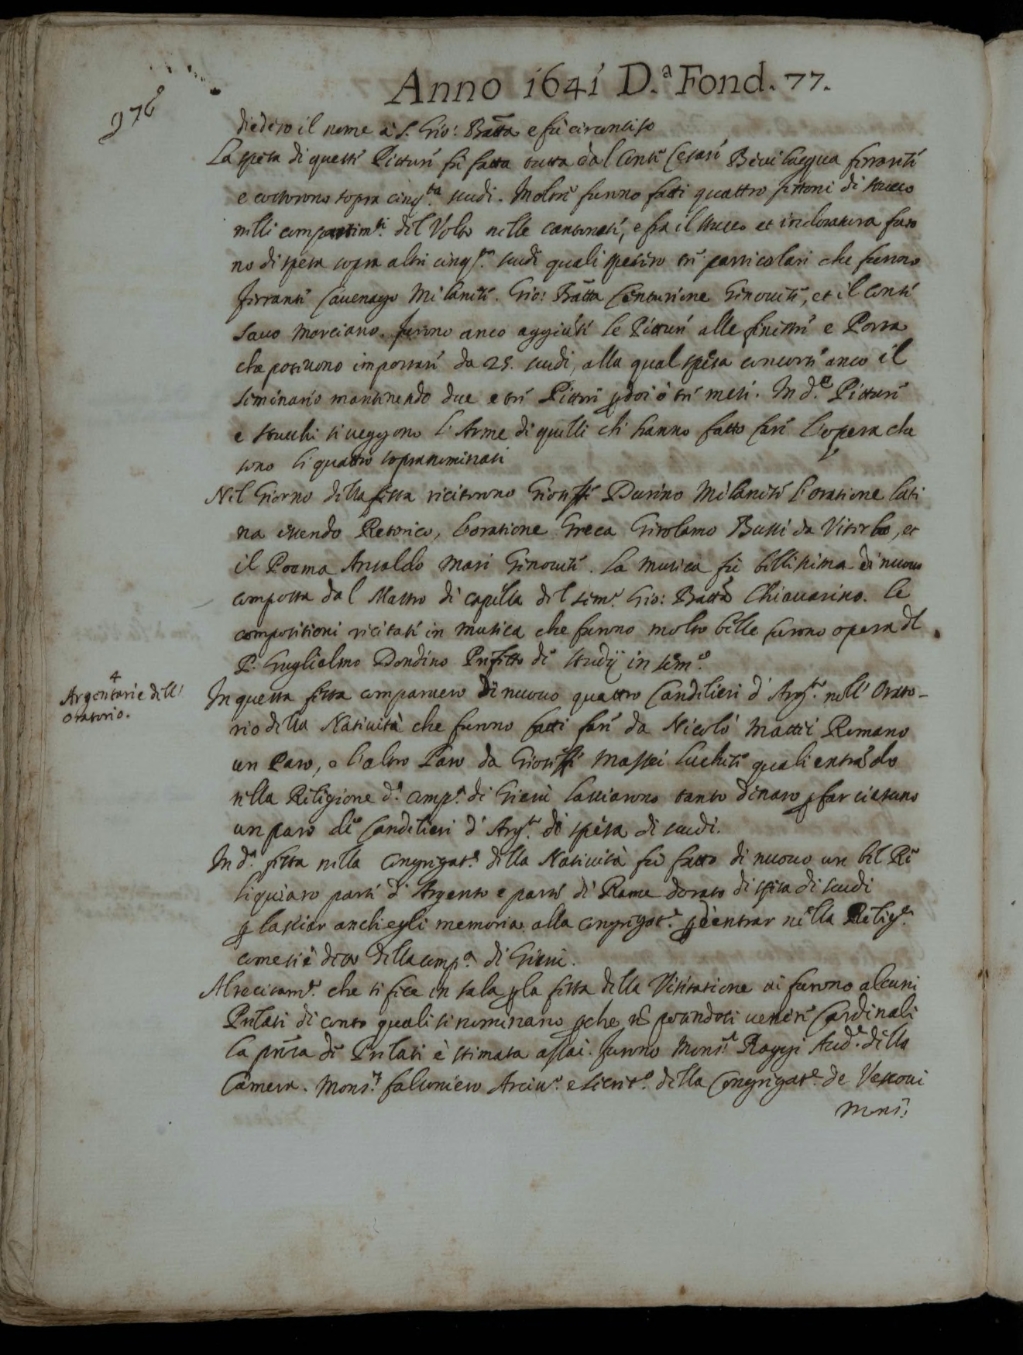 976
Anno 1641 D.ª Fond. 77.
diedero il nome à S. Gio: Batta e fù circonciso
La spesa di queste Pitture fù fatta tutta dal Conte Cesare Bevilacqua ferrarese
e costorono sopra cinq.ta scudi. Molore furno fatti quattro fettoni di stucco
nelli compartim.ti del Volto nelle cantonate, e fra il stucco et indoratura furo
no di spesa sopra altri cinq.ta scudi quali spesero tre particolari che furono
ferrante Cavenago Milanese. Gio: Batta Centurione Genovese, et il Conte
Savo Marciano. furono anco aggiunte le Pitture alle finestre e Porta
che potevono importare da 25. scudi, alla qual spesa concorse anco il
seminario mantenendo due e tre Pittori p doi ò tre mesi. In d.e Pitture
e stucchi si veggono l'Arme di quelli ch'hanno fatto fare l'opera che
sono li quattro sopranominati
Nel Giorno della festa recitorono Gioseffe Durino Milanese l'oratione lati
na essendo Retorico, l'oratione Greca Girolamo Bussi da Viterbo, et
il Poema Ansaldo Mari Genovese. La musica fù bellissima di nuovo
composta dal Mastro di capella del sem.o Gio: Batta Chiavarino. le
compositioni recitate in musica che furono molto belle furono opera del
P. Guglielmo Dondino Prefetto de studij in sem.o
4
Argentarie dell'
oratorio.
In questa festa comparvero di nuovo quattro Candelieri d'Arg.to nell'Orato-
rio della Natività che furono fatti fare da Nicolò Mattei Romano
un Paro, e l'altro Paro da Gioseffe Massei Luchese quali entrando
nella Religione d.a Comp.a di Giesù lassiarono tanto denaro p far ciascuno
un paro de Candelieri d'Arg.to di spesa di scudi.
In d.a festa nella Congregat.e della Natività fù fatto di nuovo un bel Re
liquiaro parte d'Argento e parte di Rame dorato di spesa di scudi
p lasciar anch'egli memoria alla Congregat.e p d'entrar nella Relig.e
come si è detto della Comp.a di Giesù.
Al recitam.to che si fece in sala p la festa della Visitatione vi furono alcuni
Prelati di conto quali si nominano p che nō potendosi venire Cardinali
la pn̄za de Prelati è stimata assai. furono Mons.r Raggi Aud.e della
Camera. Mons.r falconiero Arciv.o e secret.o della Congregat.e de Vescovi
Mons.r